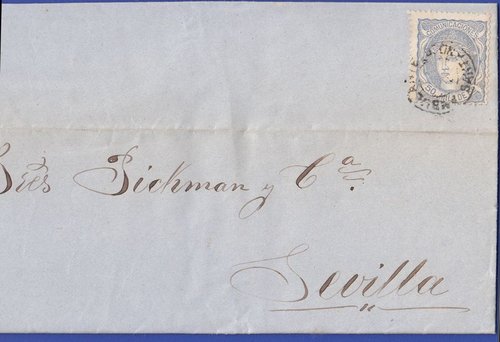 COMUNICACIONES
Sres Pickman y Cª.
Sevilla